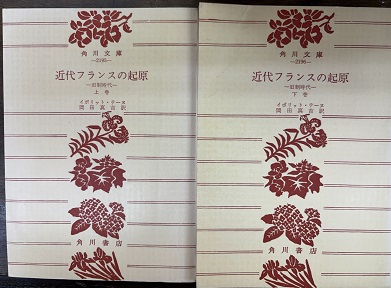 角川文庫
—2195—
近代フランスの起原
—旧制時代—
上巻
イポリット・テーヌ
岡田真吉訳
角川書店
角川文庫
—2196—
近代フランスの起原
—旧制時代—
下巻
イポリット・テーヌ
岡田真吉訳
角川書店